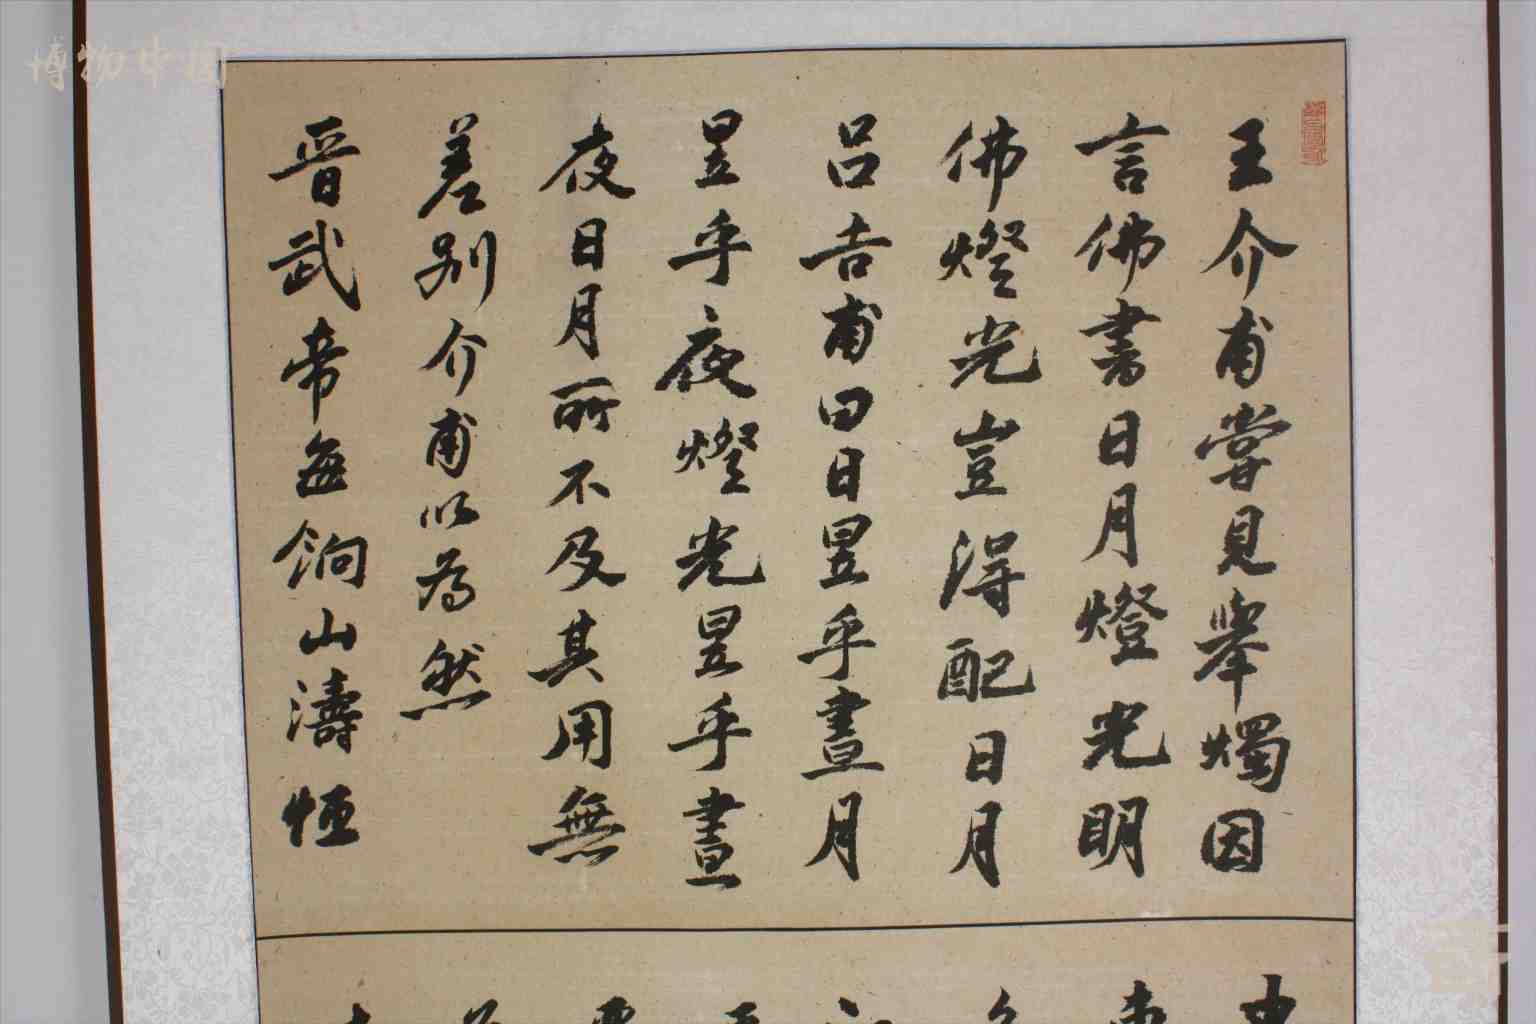 博物中国
王介甫嘗見舉燭因
言佛書日月燈光明
佛燈光豈得配日月
呂吉甫曰日昱乎晝月
昱乎夜燈光昱乎晝
夜日月所不及其用無
差別介甫以為然
晋武帝每餉山濤恒